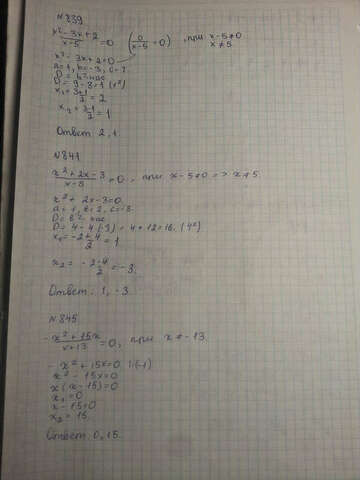 №839
x² - 3x + 2 / x-5 = 0 (0 / x-5 = 0), при x-5≠0
x≠5.
x² - 3x + 2 = 0
a = 1, b = -3, c = 2
D = b² - 4ac
D = 9 - 8 = 1 (1²)
x₁ = 3+1 / 2 = 2
x₂ = 3-1 / 2 = 1
Ответ 2, 1.
№841
x² + 2x - 3 / x-5 = 0, при x-5≠0 => x≠5.
x² + 2x - 3 = 0.
a = 1, b = 2, c = -3.
D = b² - 4ac
D = 4 - 4·(-3) = 4 + 12 = 16. (4²)
x₁ = -2+4 / 2 = 1
x₂ = -2-4 / 2 = -3.
Ответ: 1, -3.
№845
- x² + 15x / x+13 = 0, при x≠-13.
- x² + 15x = 0 |:(-1)
x² - 15x = 0
x(x-15) = 0
x₁ = 0
x - 15 = 0
x₂ = 15.
Ответ 0, 15.